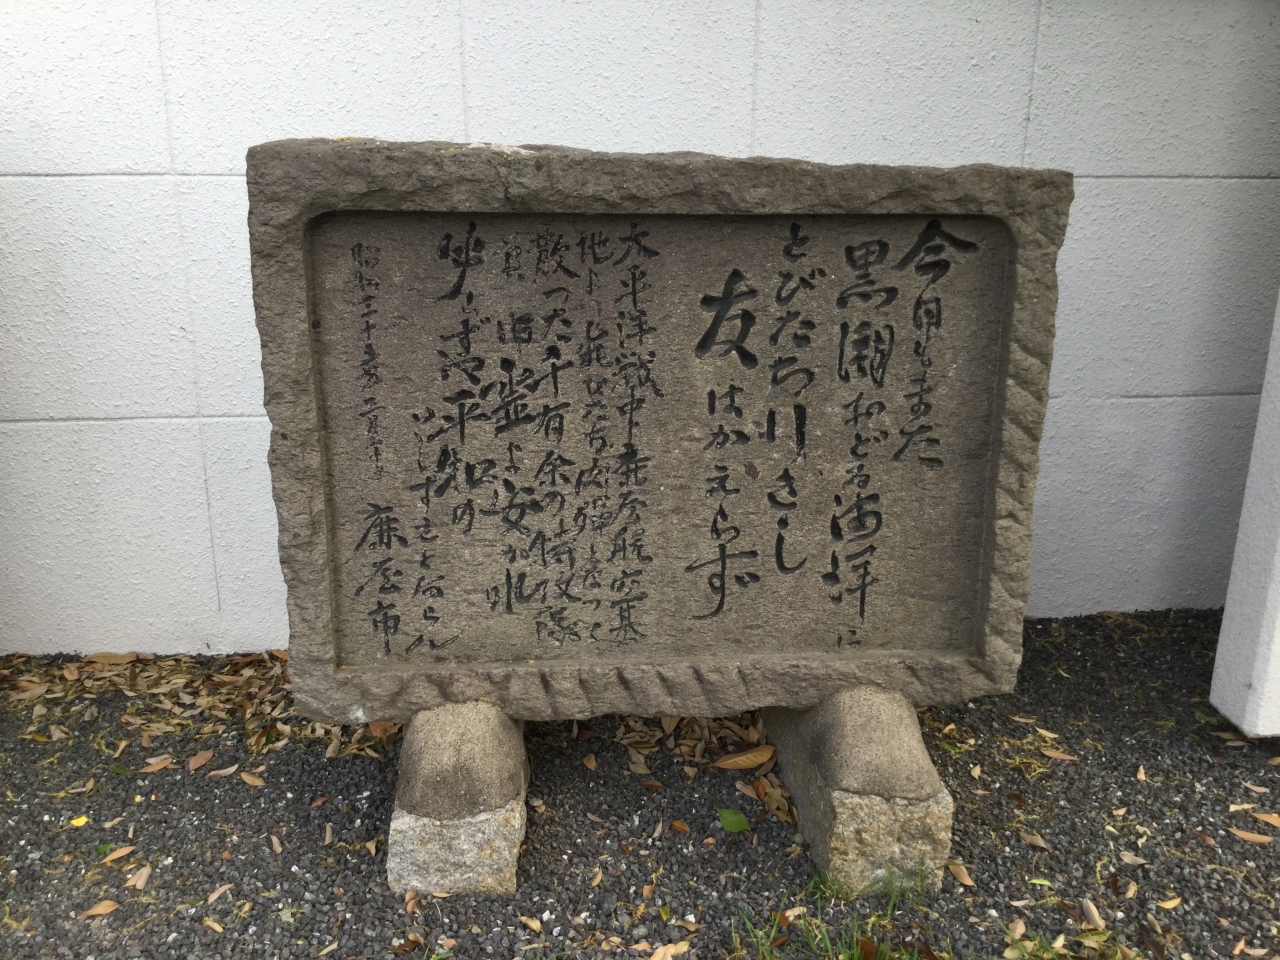 今日もまた
黒潮おどる海洋に
とびたち行きし
友はかえらず
太平洋戦中鹿屋航空基
地より飛びたち肉弾となって
散った千有余の特攻隊
員の霊よ安かれ
必らず平和の
いしずえとならん
昭和三十三年三月二十日
鹿屋市